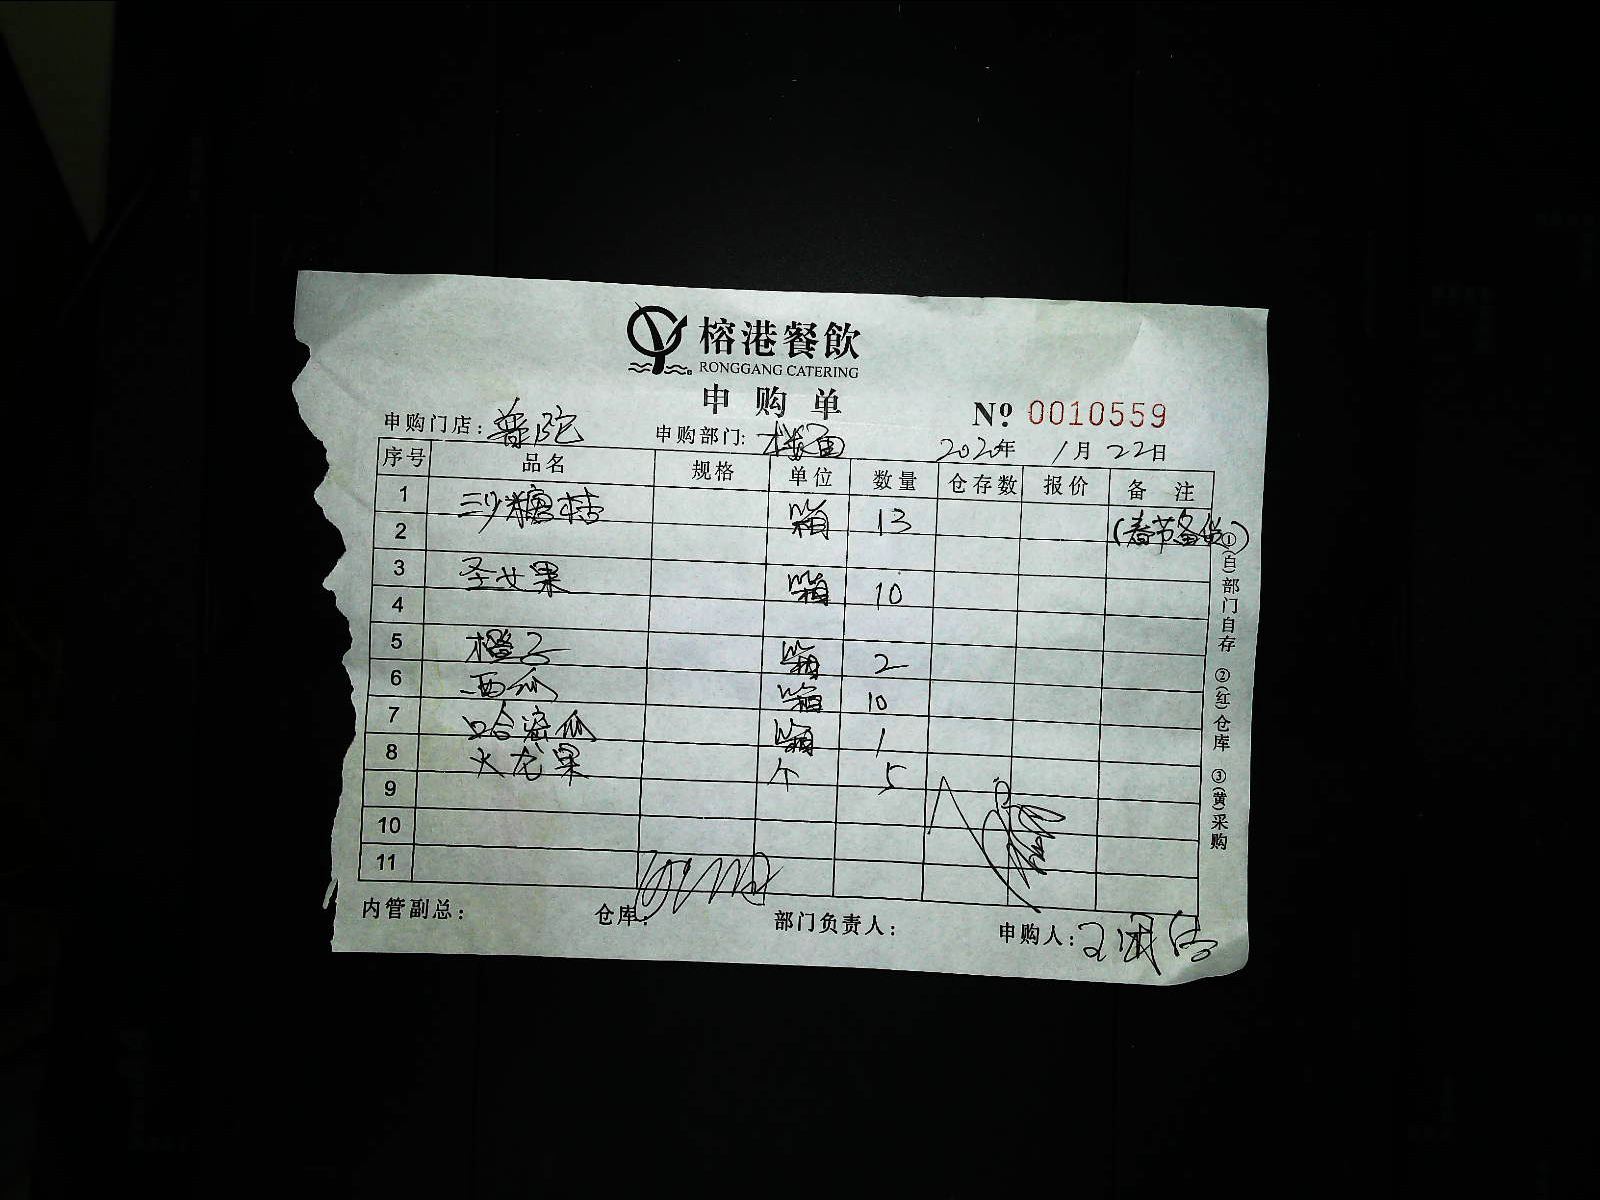 榕港餐飲
RONGGANG CATERING
申购单
№ 0010559
申购门店：普陀 申购部门：楼面 2020年 1月 22日
序号 品名 规格 单位 数量 仓存数 报价 备注
1 三沙糖桔 箱 13 (春节备货)
2
3 圣女果 箱 10
4
5 橙子 箱 2
6 西瓜 箱 10
7 哈密瓜 箱 1
8 火龙果 个 5
9
10
11
①(白)部门自存 ②(红)仓库 ③(黄)采购
内管副总： 仓库： 部门负责人： 申购人：